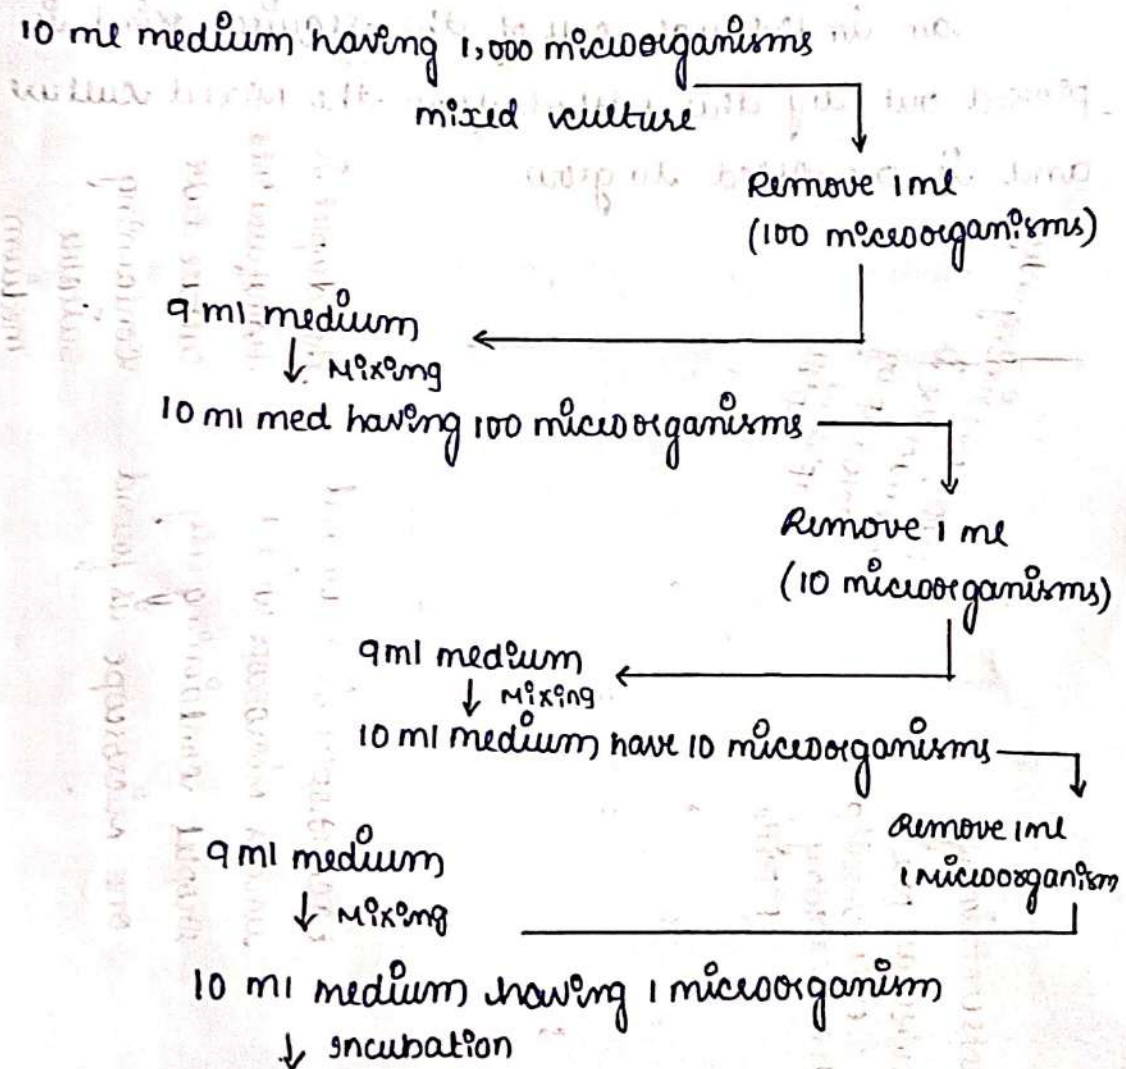 10 ml medium having 1,000 microorganisms
mixed culture
Remove 1 ml
(100 microorganisms)
9 ml medium
↓ Mixing
10 ml med having 100 microorganisms
Remove 1 ml
(10 microorganisms)
9 ml medium
↓ Mixing
10 ml medium have 10 microorganisms
Remove 1 ml
1 microorganism
9 ml medium
↓ Mixing
10 ml medium having 1 microorganism
↓ Incubation